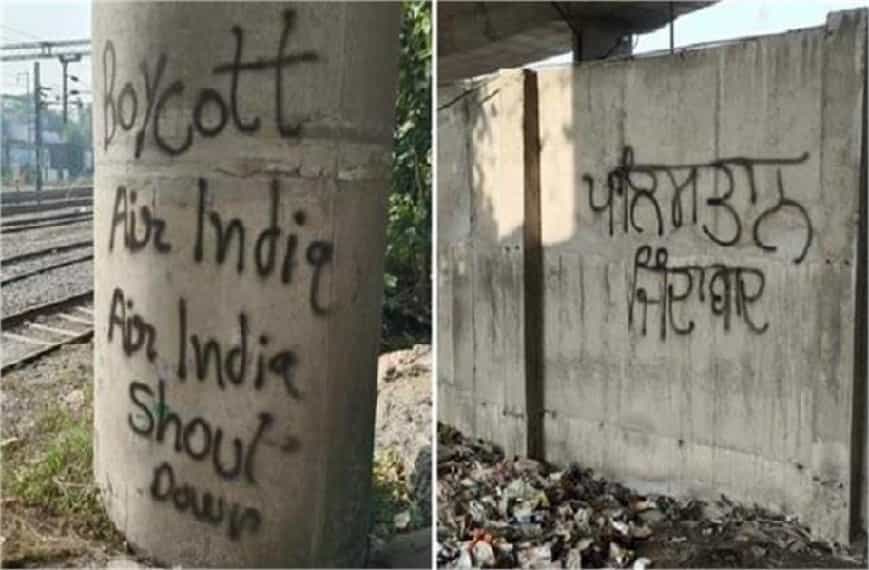 Boycott
Air India
Air India
Shout
Down
ਖਾਲਿਸਤਾਨ
ਜਿੰਦਾਬਾਦ